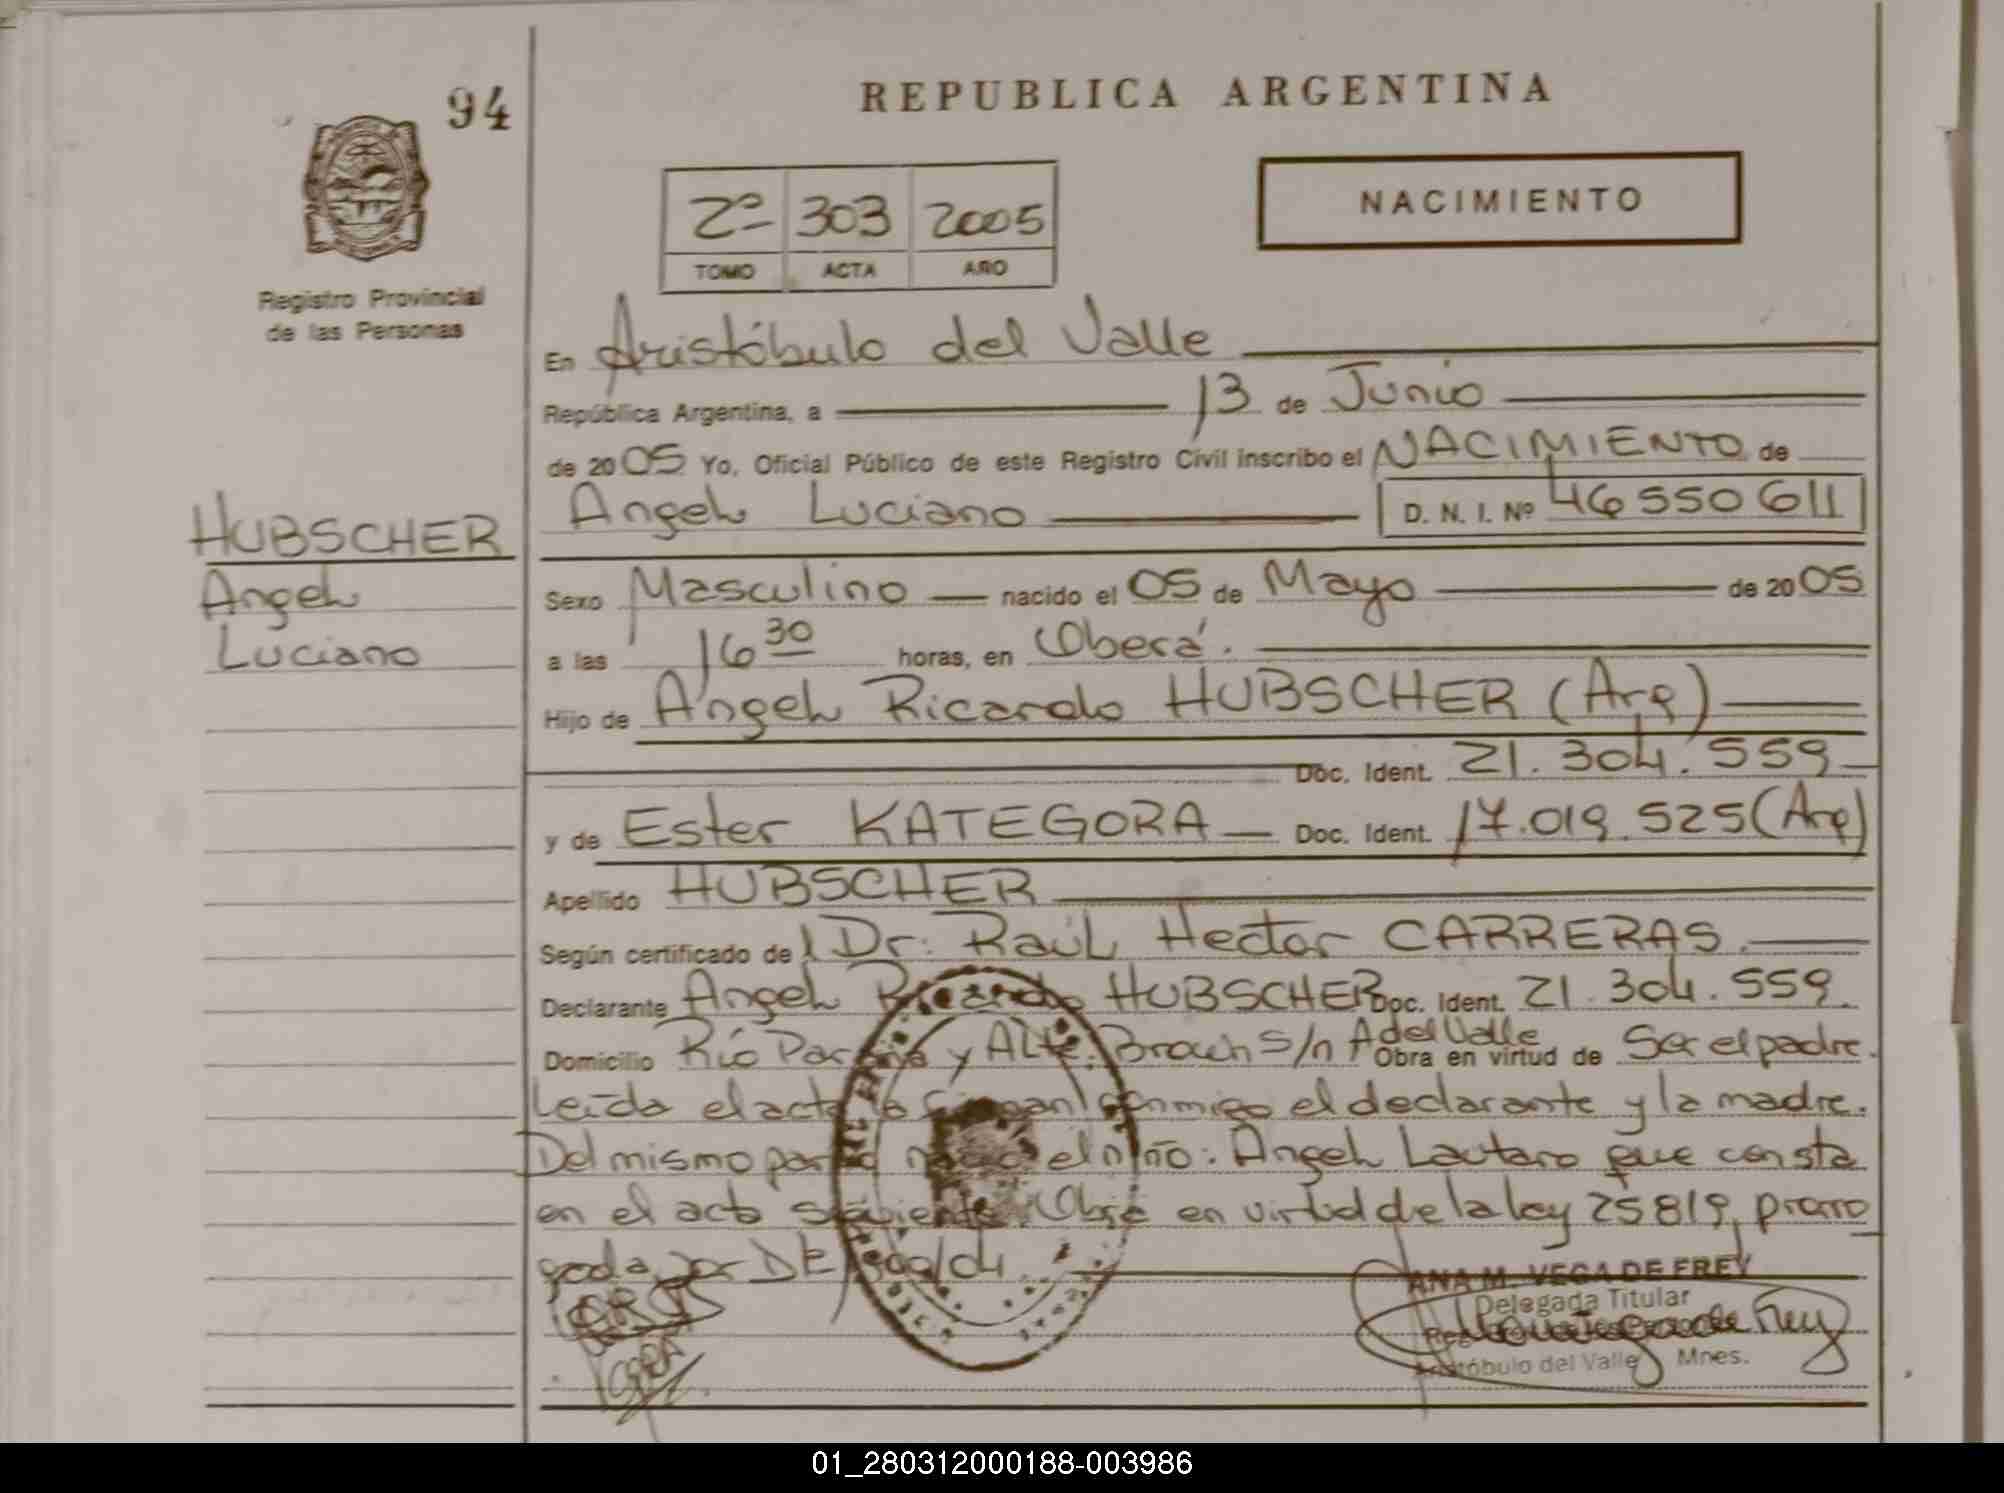 94
REPUBLICA ARGENTINA
2º 303 2005
TOMO ACTA AÑO
NACIMIENTO
Registro Provincial
de las Personas
En Aristóbulo del Valle
República Argentina, a 13 de Junio
de 2005 Yo, Oficial Público de este Registro Civil inscribo el NACIMIENTO de
Angel Luciano D. N. I. Nº 46550611
HUBSCHER
Angel
Luciano
Sexo Masculino nacido el 05 de Mayo de 2005
a las 16 30 horas, en Oberá.
Hijo de Angel Ricardo HUBSCHER (Arg)
Doc. Ident. 21.304.559
y de Ester KATEGORA Doc. Ident. 17.019.525 (Arg)
Apellido HUBSCHER
Según certificado del Dr: Raúl Hector CARRERAS.
Declarante Angel Ricardo HUBSCHER Doc. Ident. 21.304.559
Domicilio Río Paraná y Alte. Brown S/n A del Valle Obra en virtud de Ser el padre.
Leída el acta la firman conmigo el declarante y la madre.
Del mismo parto nació el niño: Angel Lautaro que consta
en el acta siguiente. Obré en virtud de la ley 25819, prorro
gada por
ANA M. VEGA DE FREY
Delegada Titular
Aristóbulo del Valle Mnes.
01_280312000188-003986